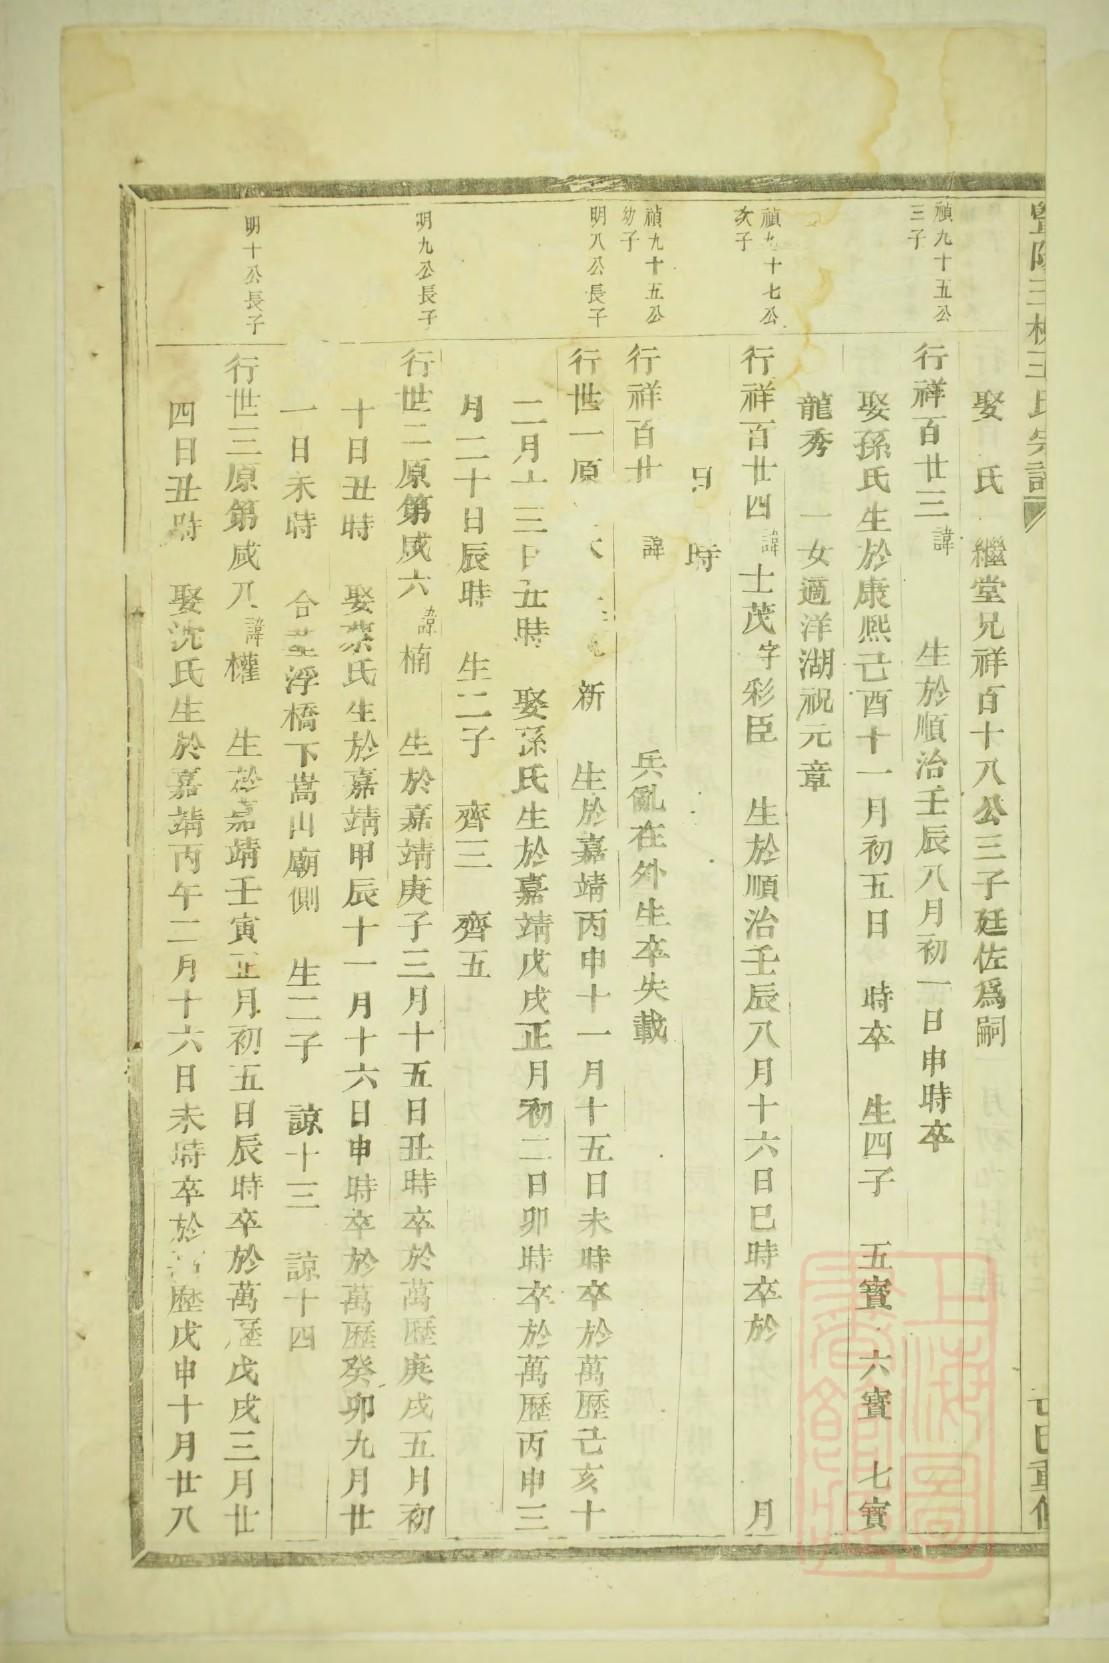 暨陽三橋王氏宗譜
己巳重修
娶　氏　繼堂兄祥百十八公三子廷佐爲嗣
禎九十五公
三子
行祥百廿三諱　生於順治壬辰八月初一日申時卒
娶孫氏生於康熙己酉十一月初五日　時卒　生四子　五寶　六寶　七寶
龍秀　一女適洋湖祝元章
禎九十七公
次子
行祥百廿四諱士茂字彩臣　生於順治壬辰八月十六日巳時卒於　月
日　時
禎九十五公
幼子
行祥百廿　諱　兵亂在外生卒失載
明八公長子
行世一原　新　生於嘉靖丙申十一月十五日未時卒於萬歷己亥十
二月十三日丑時　娶孫氏生於嘉靖戊戌正月初二日卯時卒於萬歷丙申三
月二十日辰時　生二子　齊三　齊五
明九公長子
行世二原第咸六諱楠　生於嘉靖庚子三月十五日丑時卒於萬歷庚戌五月初
十日丑時　娶蔡氏生於嘉靖甲辰十一月十六日申時卒於萬歷癸卯九月廿
一日未時　合墓浮橋下嵩山廟側　生二子　諒十三　諒十四
明十公長子
行世三原第咸九諱權　生於嘉靖壬寅正月初五日辰時卒於萬歷戊戌三月廿
四日丑時　娶沈氏生於嘉靖丙午二月十六日未時卒於萬歷戊申十月廿八